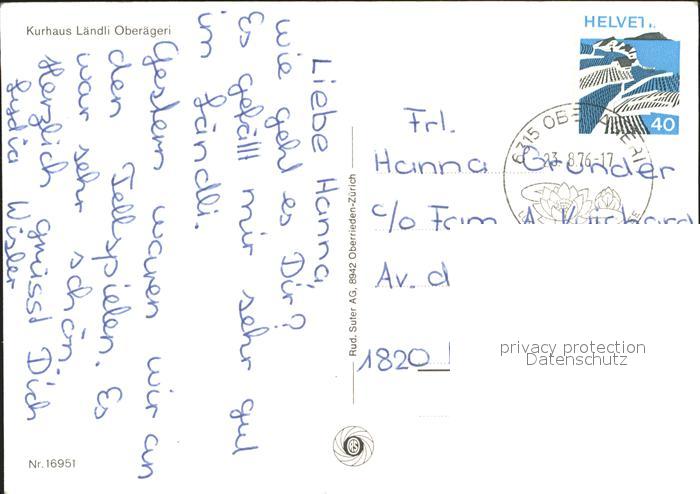 Kurhaus Ländli Oberägeri
Liebe Hanna,
wie geht es Dir?
Es gefällt mir sehr gut
im Ländli.
Gestern waren wir an
den Tellspielen. Es
war sehr schön.
Herzlich grüsst Dich
Lydia Wisler
Nr. 16951
Rud. Suter AG, 8942 Oberrieden-Zürich
HELVETI
40
6315 OBERÄGERI
23.8.76-17
Frl.
Hanna Gründer
c/o Fam. A.
Av. d
1820
privacy protection
Datenschutz